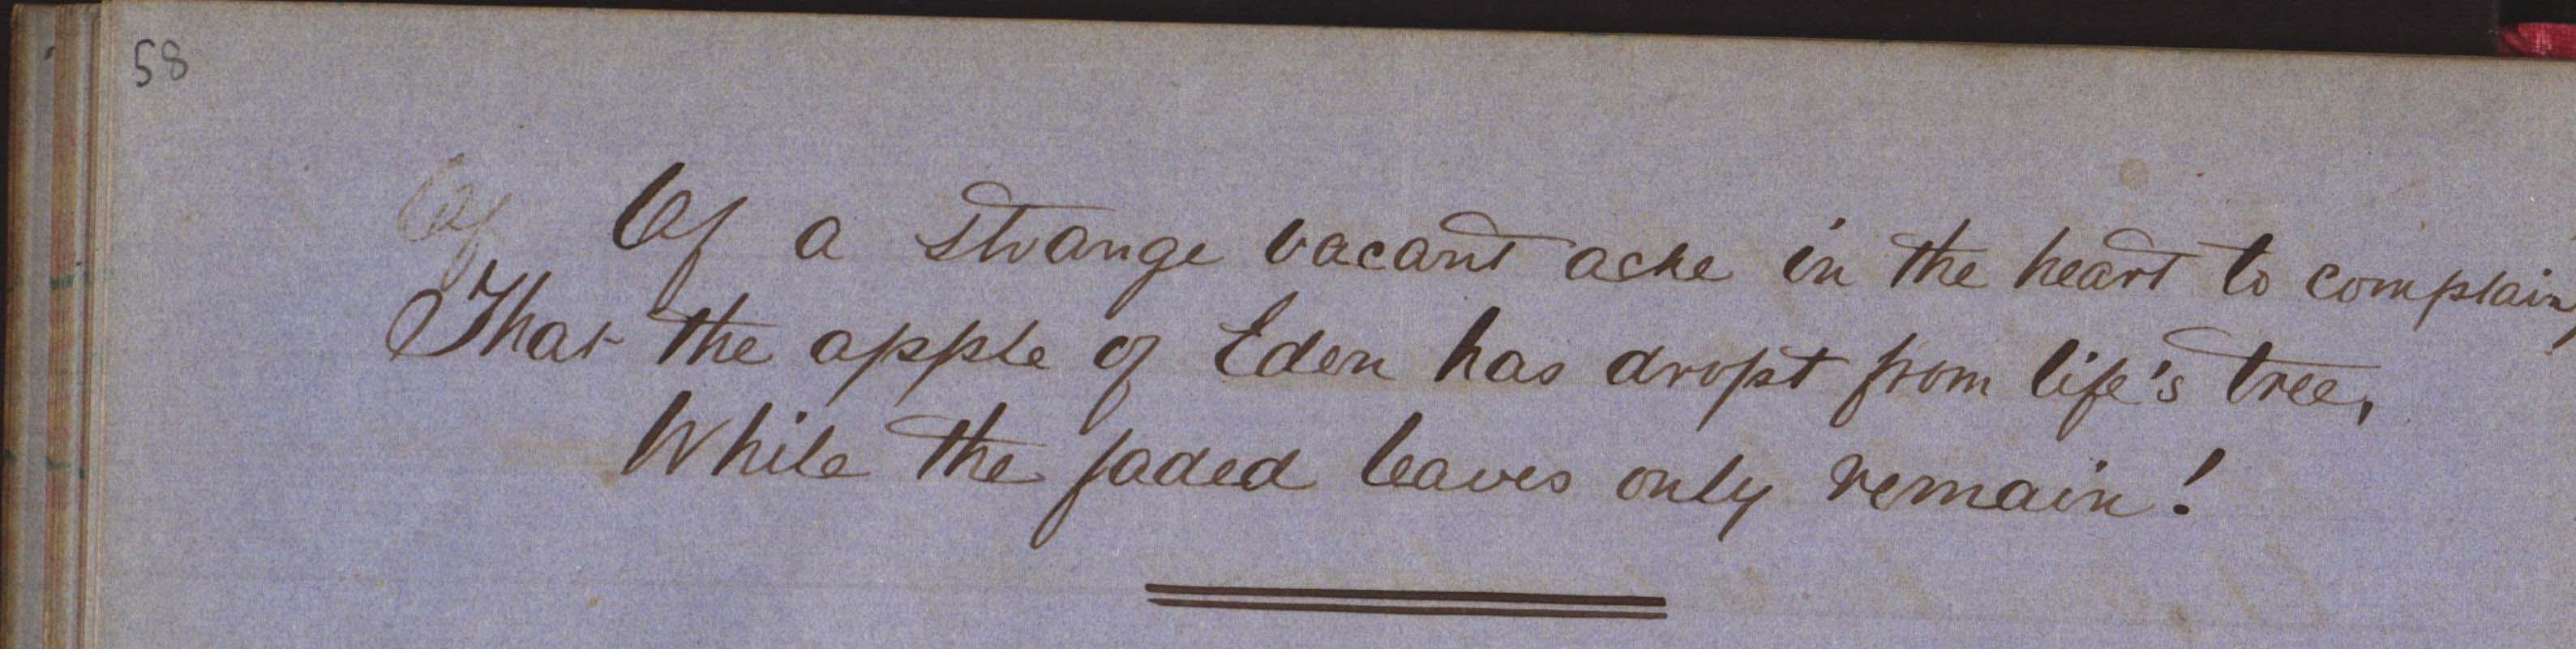 58
Of Of a strange vacant ache in the heart to complain,
That the apple of Eden has dropt from life's tree,
While the faded leaves only remain!